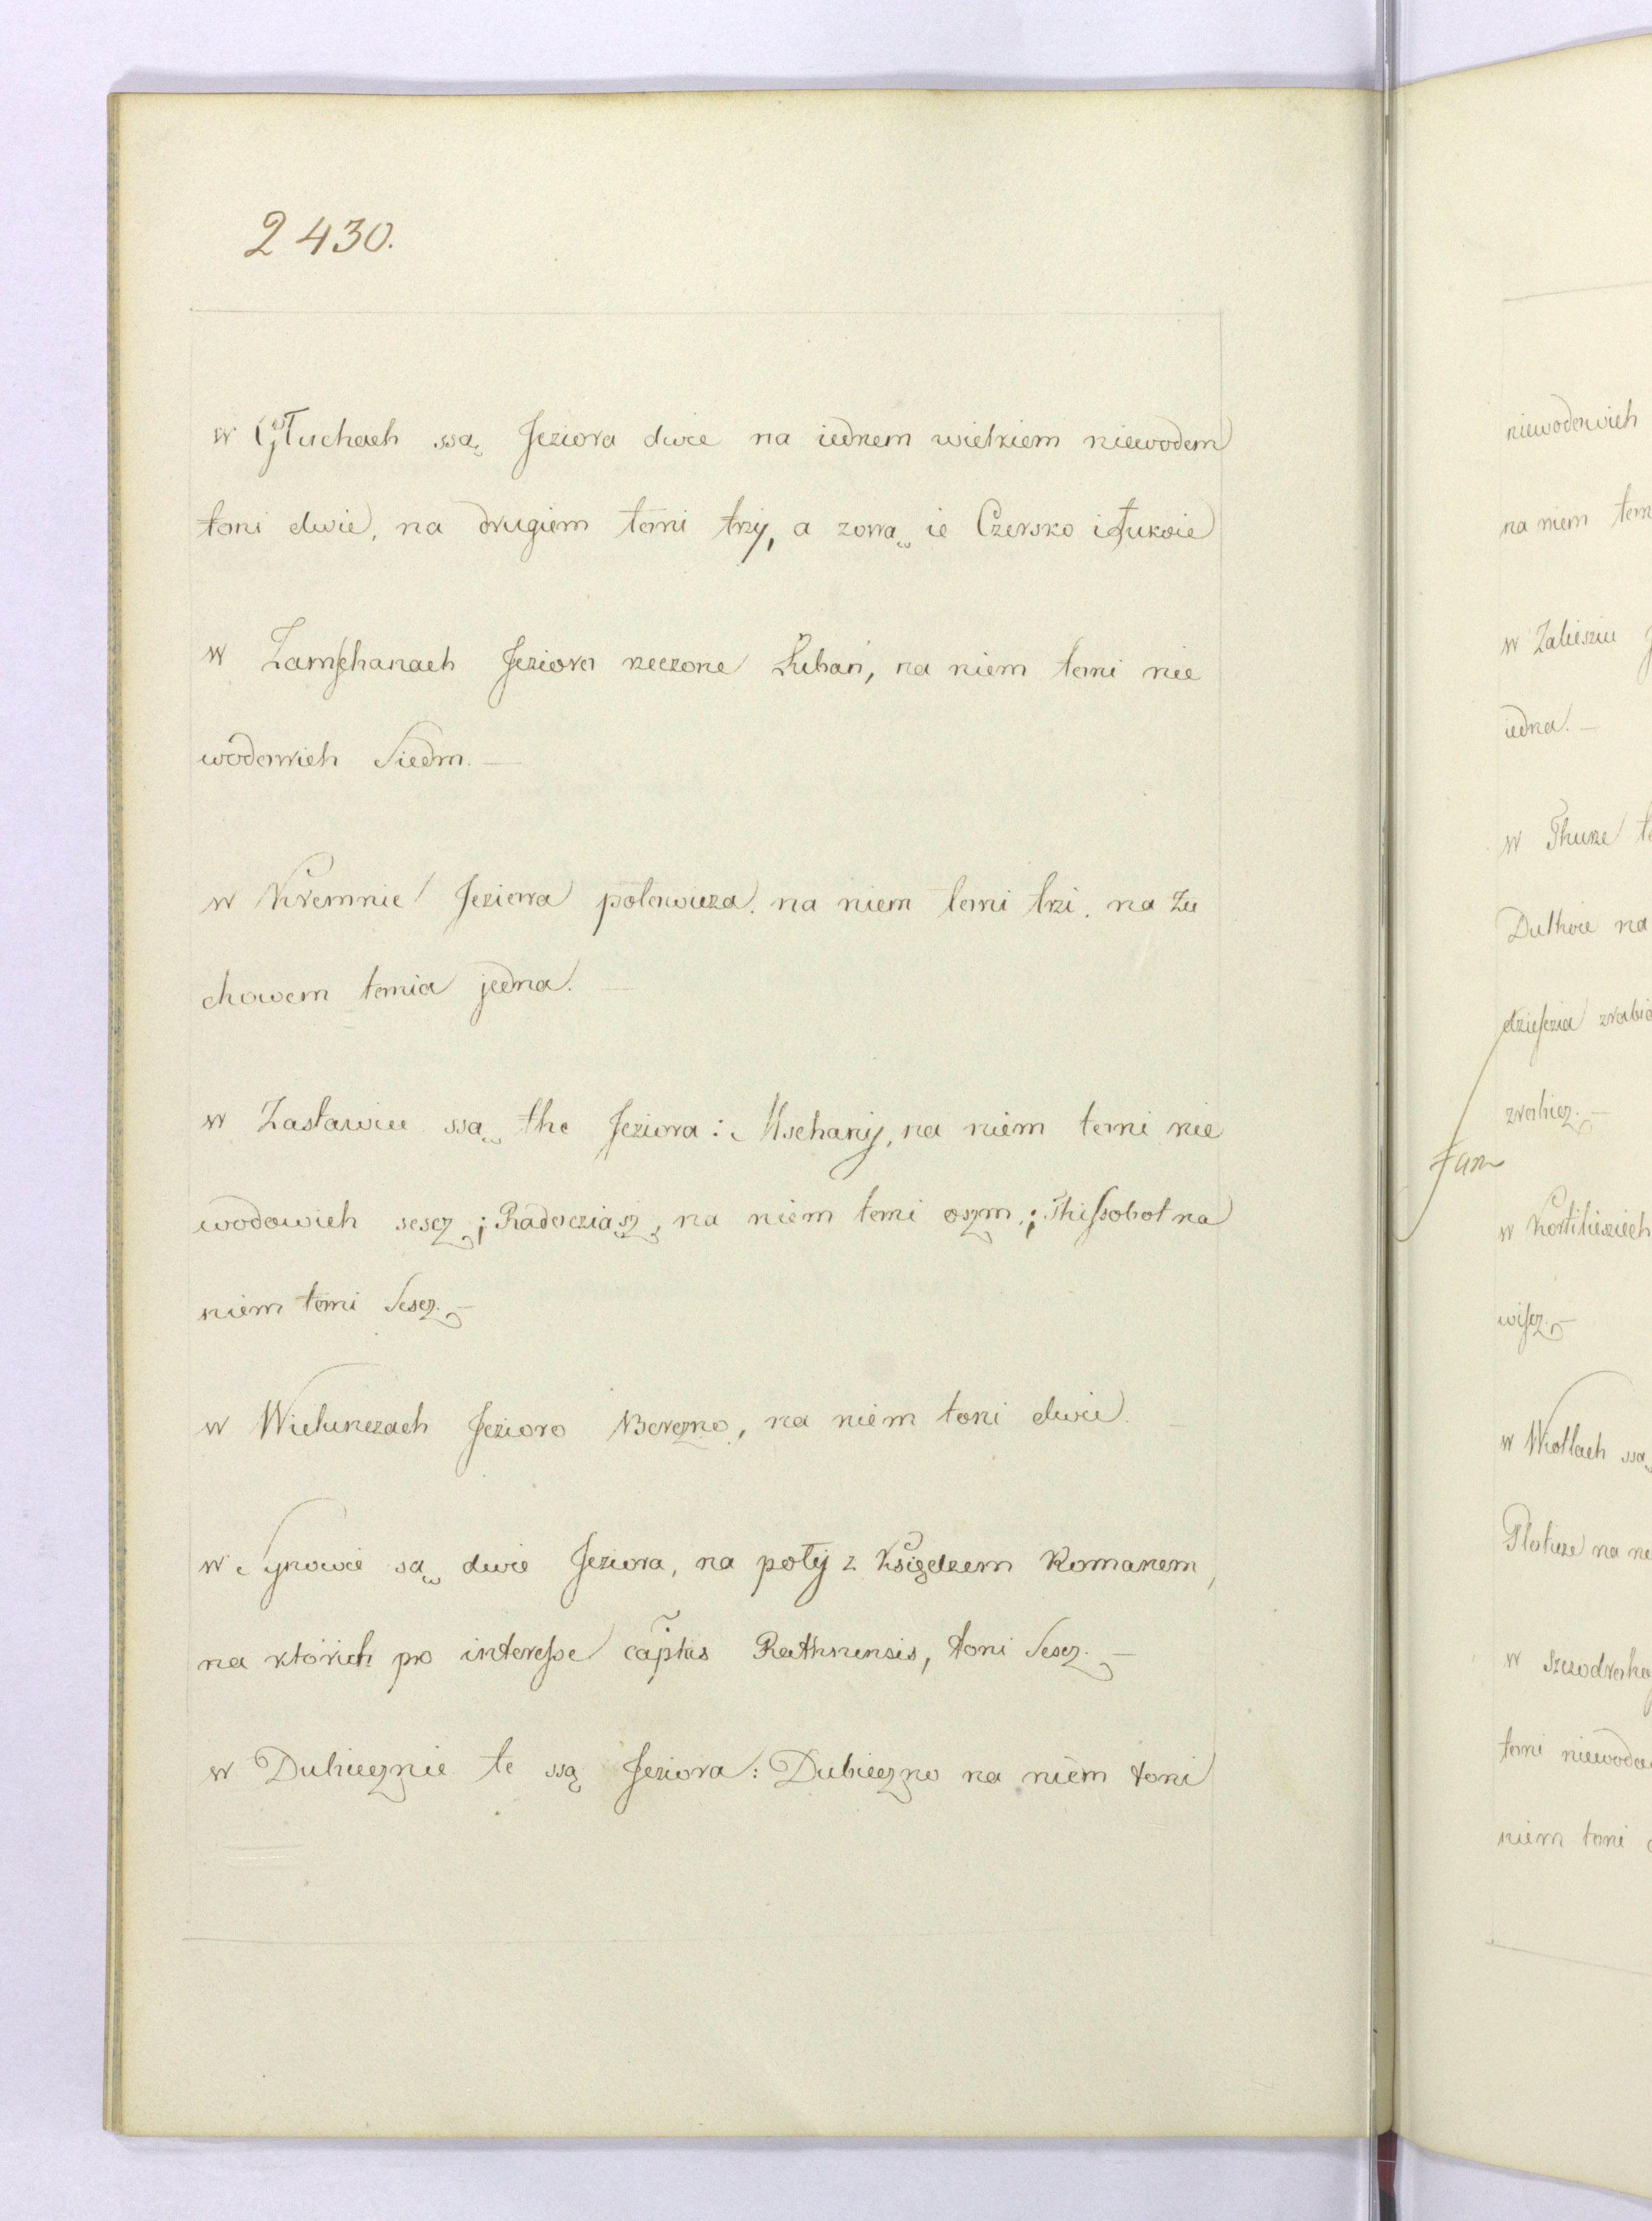 2430.
w Głuchach ssą Jeziora dwie na iednem wielkiem niewodem
toni dwie, na drugiem toni trzy, a zową ie Czersko i Łukoie
w Zamschanach Jezioro rzeczone Luban, na niem toni nie
wodowich Siedm. —
w Kremnie Jeziora połowicza. na niem toni trzi. na Zu
chowem tonia jedna. —
w Zastawiu ssą the Jeziora: Mschany, na niem toni nie
wodowich sescz; Radocziasz, na niem toni oszm; Thissobol na
niem toni Sescz. —
w Wielunczach Jezioro Berezno, na niem toni dwie. —
w Synowie są dwie Jeziora, na poły z Księdzem Romanem,
na ktorich pro interesse captis Rathnensis, toni Sescz. —
w Dubiecznie te ssą Jeziora: Dubieczno na niem toni
niewodowich
na niem toni
w Zaliesziu
iedna. —
w Thurze
Dulkoie na
dziescia
wiscz. —
w
ssą
na
toni
niem toni